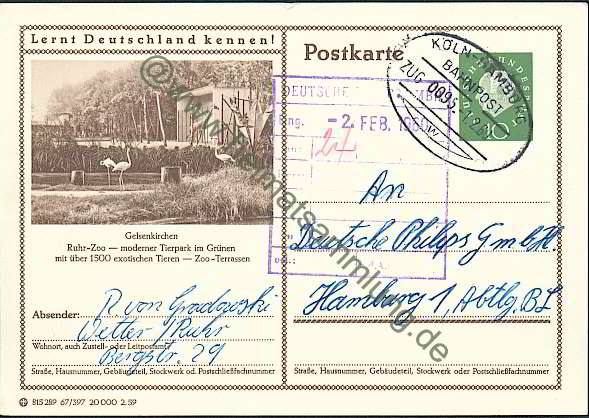 Lernt Deutschland kennen!
Gelsenkirchen
Ruhr-Zoo — moderner Tierpark im Grünen
mit über 1500 exotischen Tieren — Zoo-Terrassen
Absender: R. von Gradowski
Wetter/Ruhr
Wohnort, auch Zustell- oder Leitpostamt
Bergstr. 29
Straße, Hausnummer, Gebäudeteil, Stockwerk od. Postschließfachnummer
815 289 67/397 20 000 2.59
Postkarte
KÖLN-HAMBURG
BAHNPOST
ZUG 0095
10
DEUTSCHE
Eing. -2. FEB. 196
24
An
Deutsche Philips GmbH.
Hamburg 1, Abtlg. BL
Straße, Hausnummer, Gebäudeteil, Stockwerk oder Postschließfachnummer
© www.heimatsammlung.de